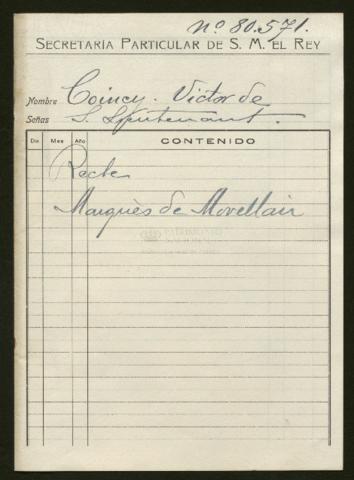 nº 80.571.
SECRETARÍA PARTICULAR DE S. M. EL REY
Nombre Coincy. Victor de
Señas S. Lieutenant.
Día Mes Año CONTENIDO
Recte
Marqués de Movellán
PATRIMONIO
NACIONAL